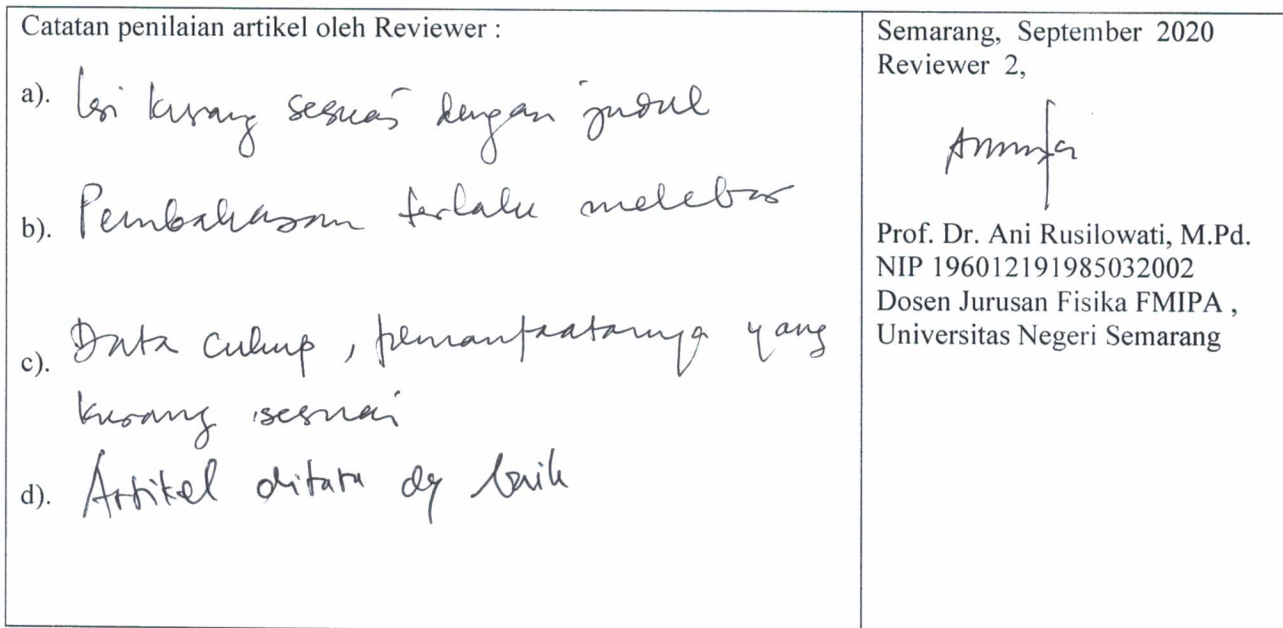 Catatan penilaian artikel oleh Reviewer :
a). Isi kurang sesuai dengan judul
b). Pembahasan terlalu melebar
c). Data cukup, pemanfaatannya yang
kurang sesuai
d). Artikel ditata dg baik
Semarang, September 2020
Reviewer 2,
Prof. Dr. Ani Rusilowati, M.Pd.
NIP 196012191985032002
Dosen Jurusan Fisika FMIPA ,
Universitas Negeri Semarang